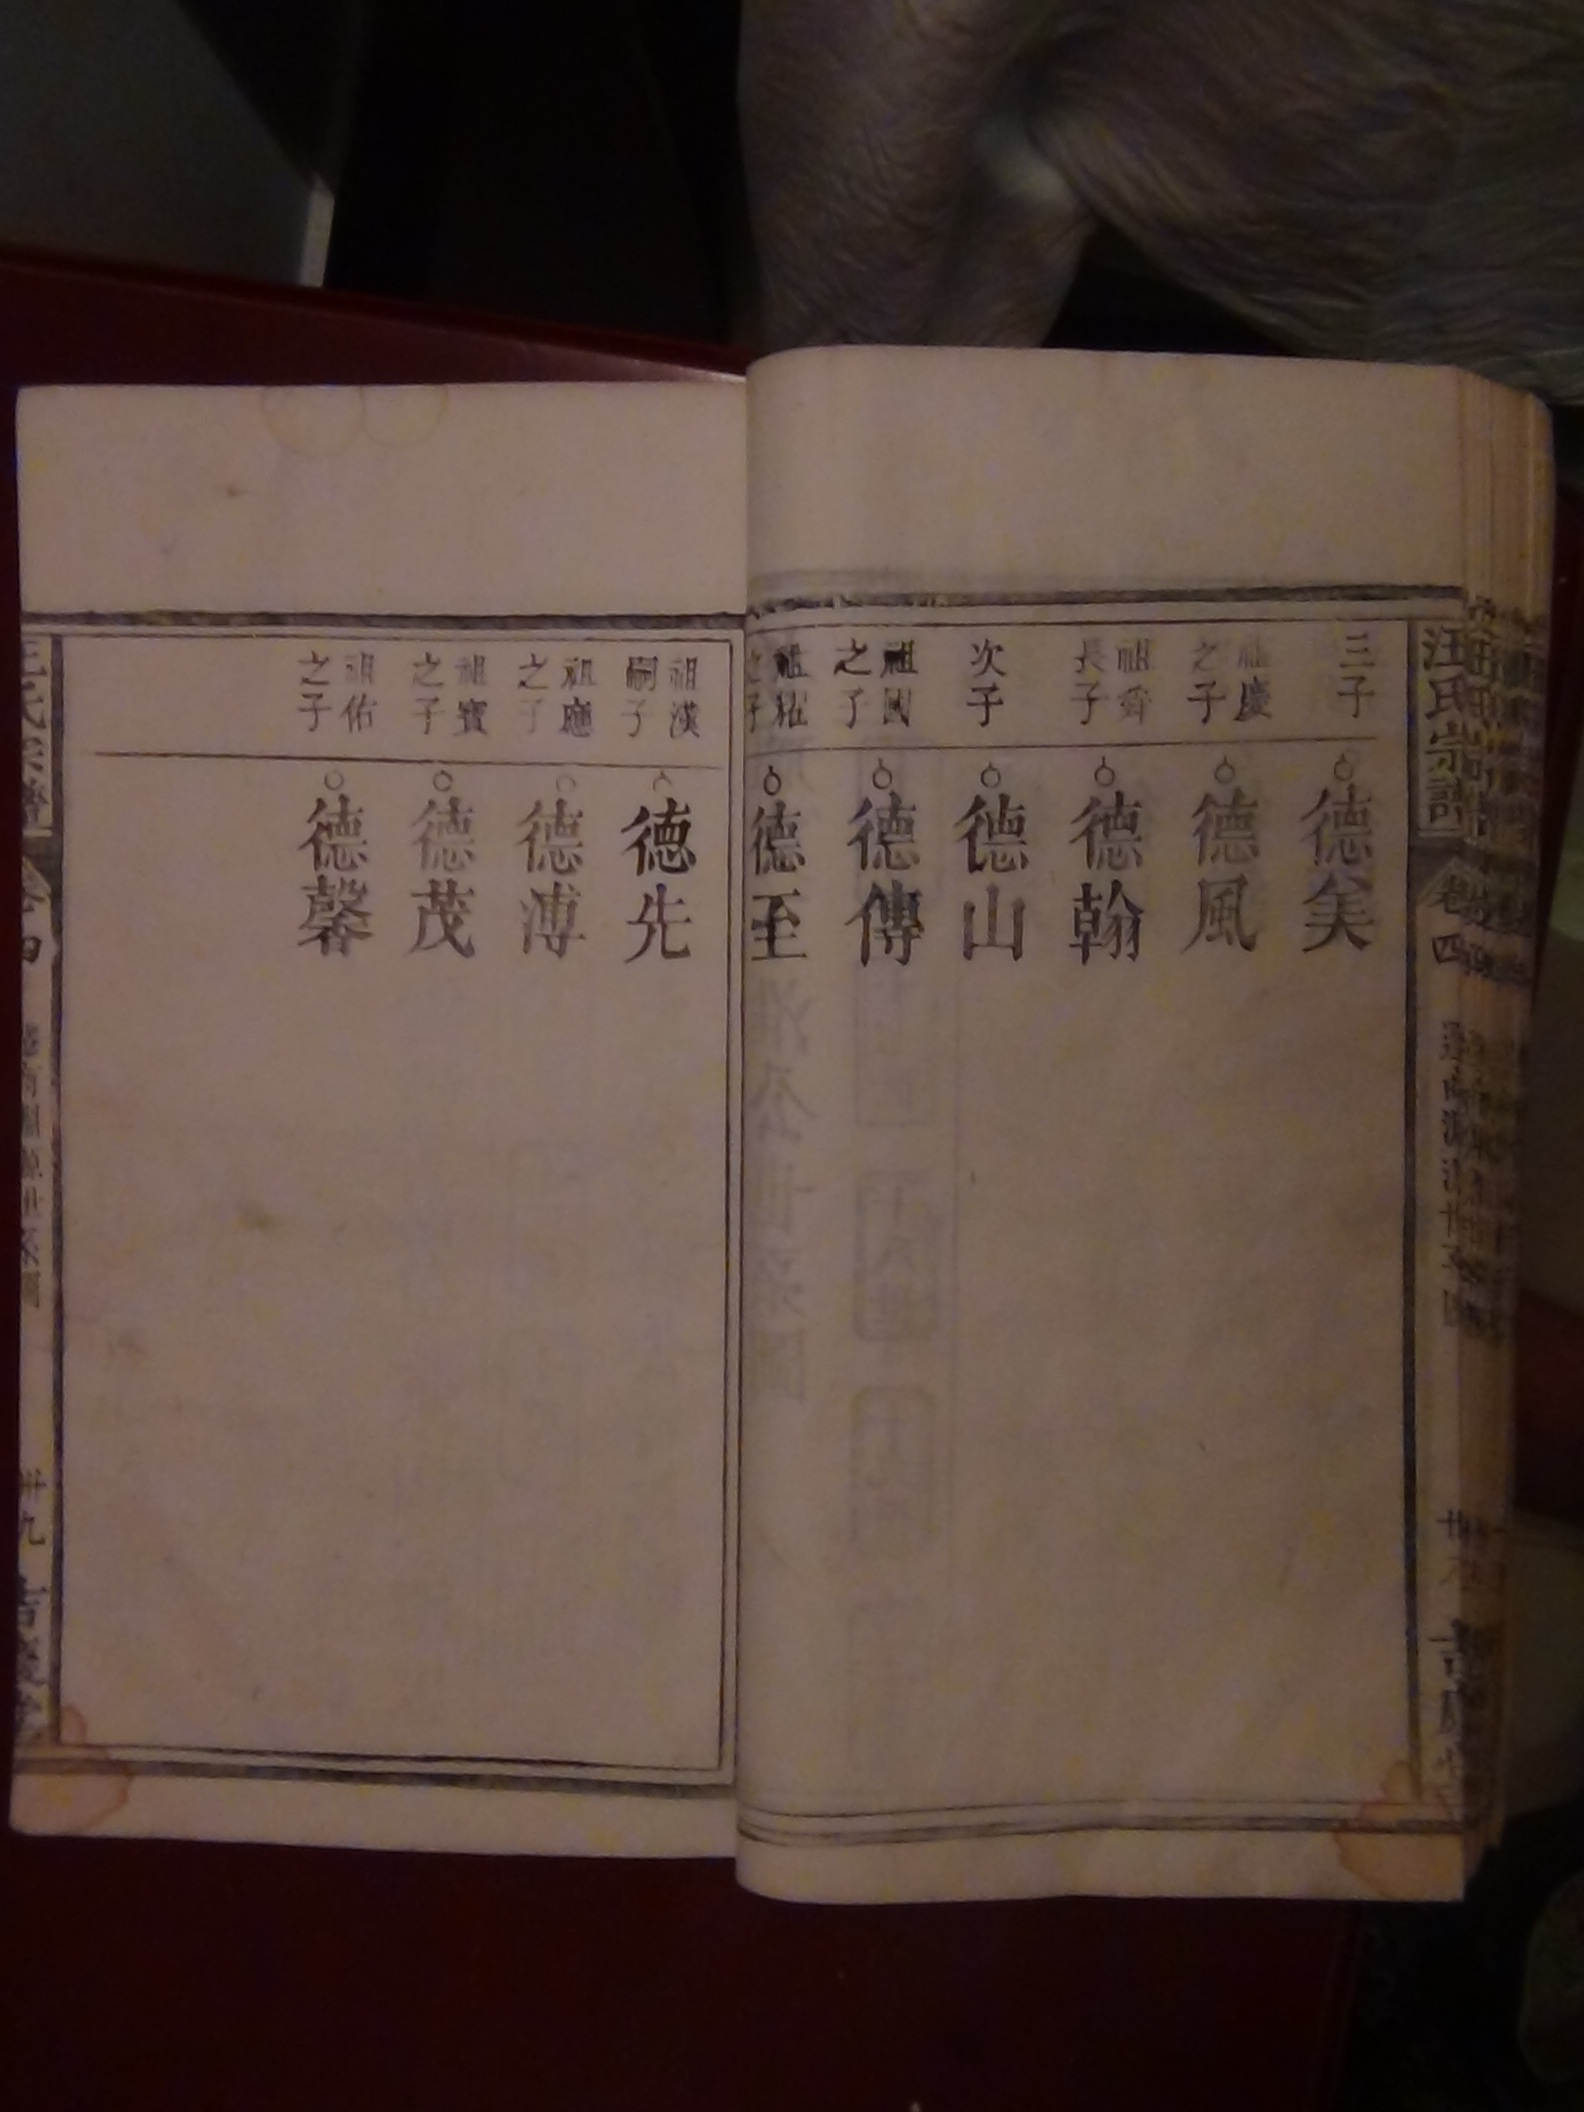 汪氏宗譜
卷四
三子
德美
祖慶之子
德風
祖齊長子
德翰
次子
德山
祖國之子
德傳
祖
之子
德至
祖漢嗣子
德先
祖應之子
德溥
祖寶之子
德茂
祖佑之子
德馨
汪氏宗譜
卷四
卅九